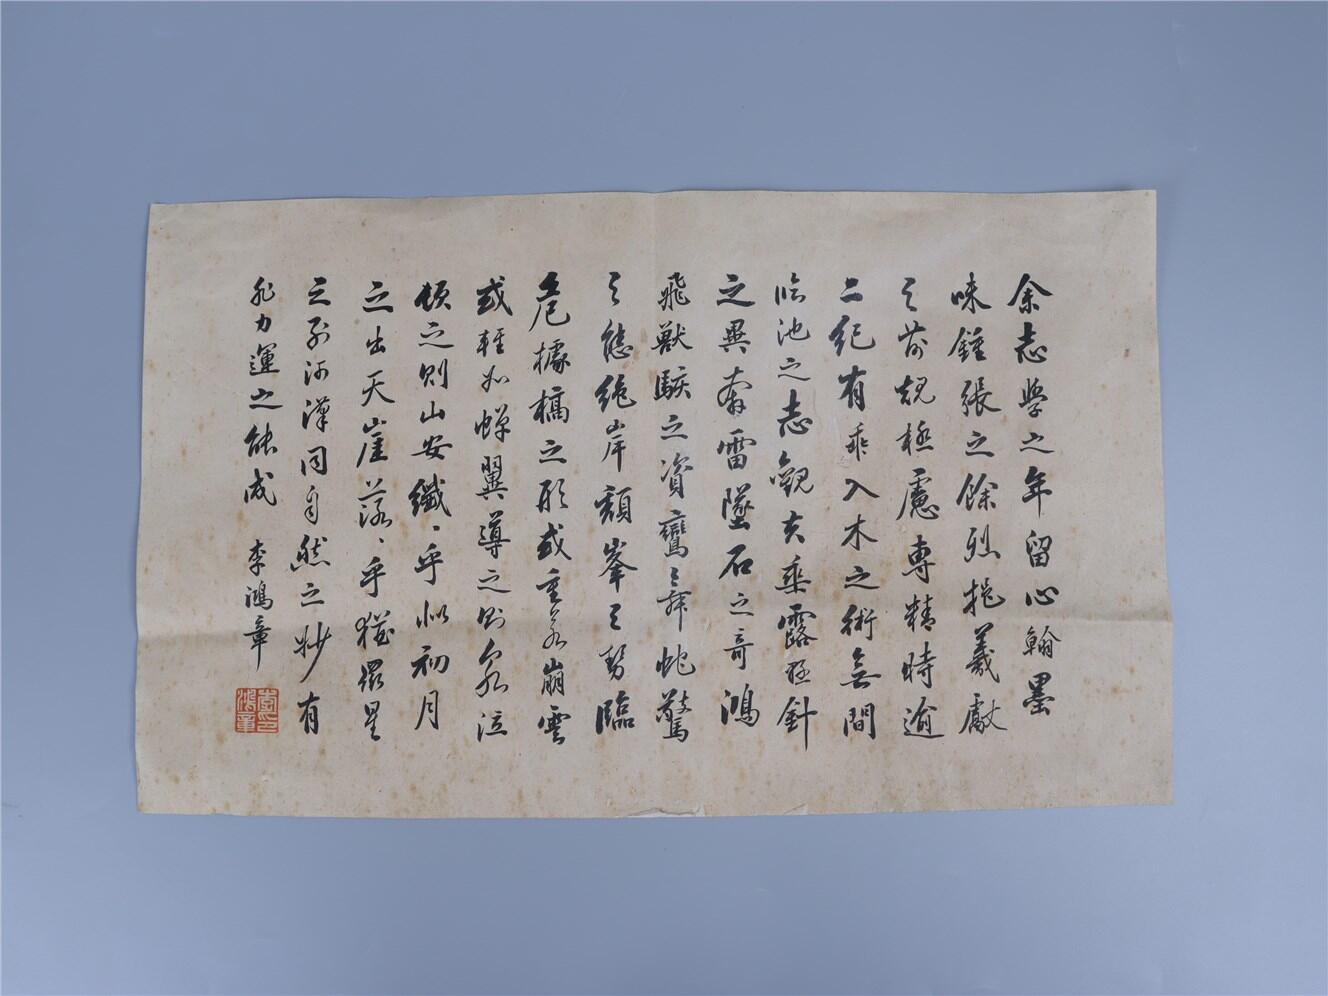 余志學之年留心翰墨
味鍾張之餘烈挹羲獻
之前規極慮專精時逾
二紀有乖入木之術無間
臨池之志觀夫垂露懸針
之異奔雷墜石之奇鴻
飛獸駭之資鸞之舞蛇驚
之態絕岸頹峯之勢臨
危據槁之形或重若崩雲
或輕如蟬翼導之則泉注
頓之則山安纖、乎似初月
之出天崖落、乎猶眾星
之列河漢同自然之妙有
非力運之能成 李鴻章
李鴻章印